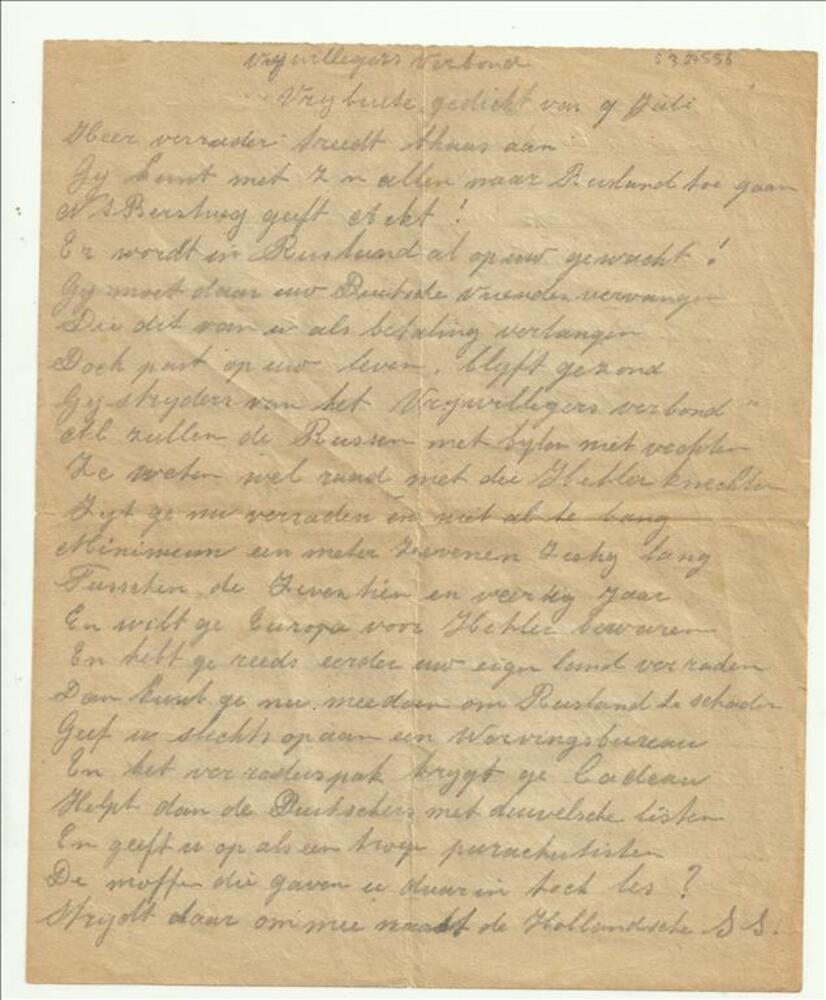 Vrywillegers Verbond
Vrybuite gedicht van 9 Juli
Heer verrader treedt thans aan
Gy kunt met z'n allen naar Rusland toe gaan
geeft Acht!
Er wordt in Rusland al op uw gewacht!
Gy moet daar uw Duitsche vrienden vervangen
Die dit van u als betaling verlangen
Doch past op uw leven, blyft gezond
Gy stryders van het Vrywillegers verbond"
Al zullen de Russen met bylen niet vechten
Ze weten wel raad met die Hitler knechten
Zyt ge nu verraden en niet al te bang
Minimum een meter Zevenen Zestig lang
Tusschen de Zeventien en veertig jaar
En wilt ge Europa voor Hitler bewaren
En hebt ge reeds eerder uw eigen land verraden
Dan kunt ge nu meedoen om Rusland te schaden
Geef u slechts op aan een Wervingsbureau
En het verraderspak krygt ge Cadeau
Helpt dan de Duitschers met duivelsche listen
En geeft u op als een troep parachutisten
De moffen die gaven u daarin toch les?
Strydt daar om mee naast de Hollandsche SS.